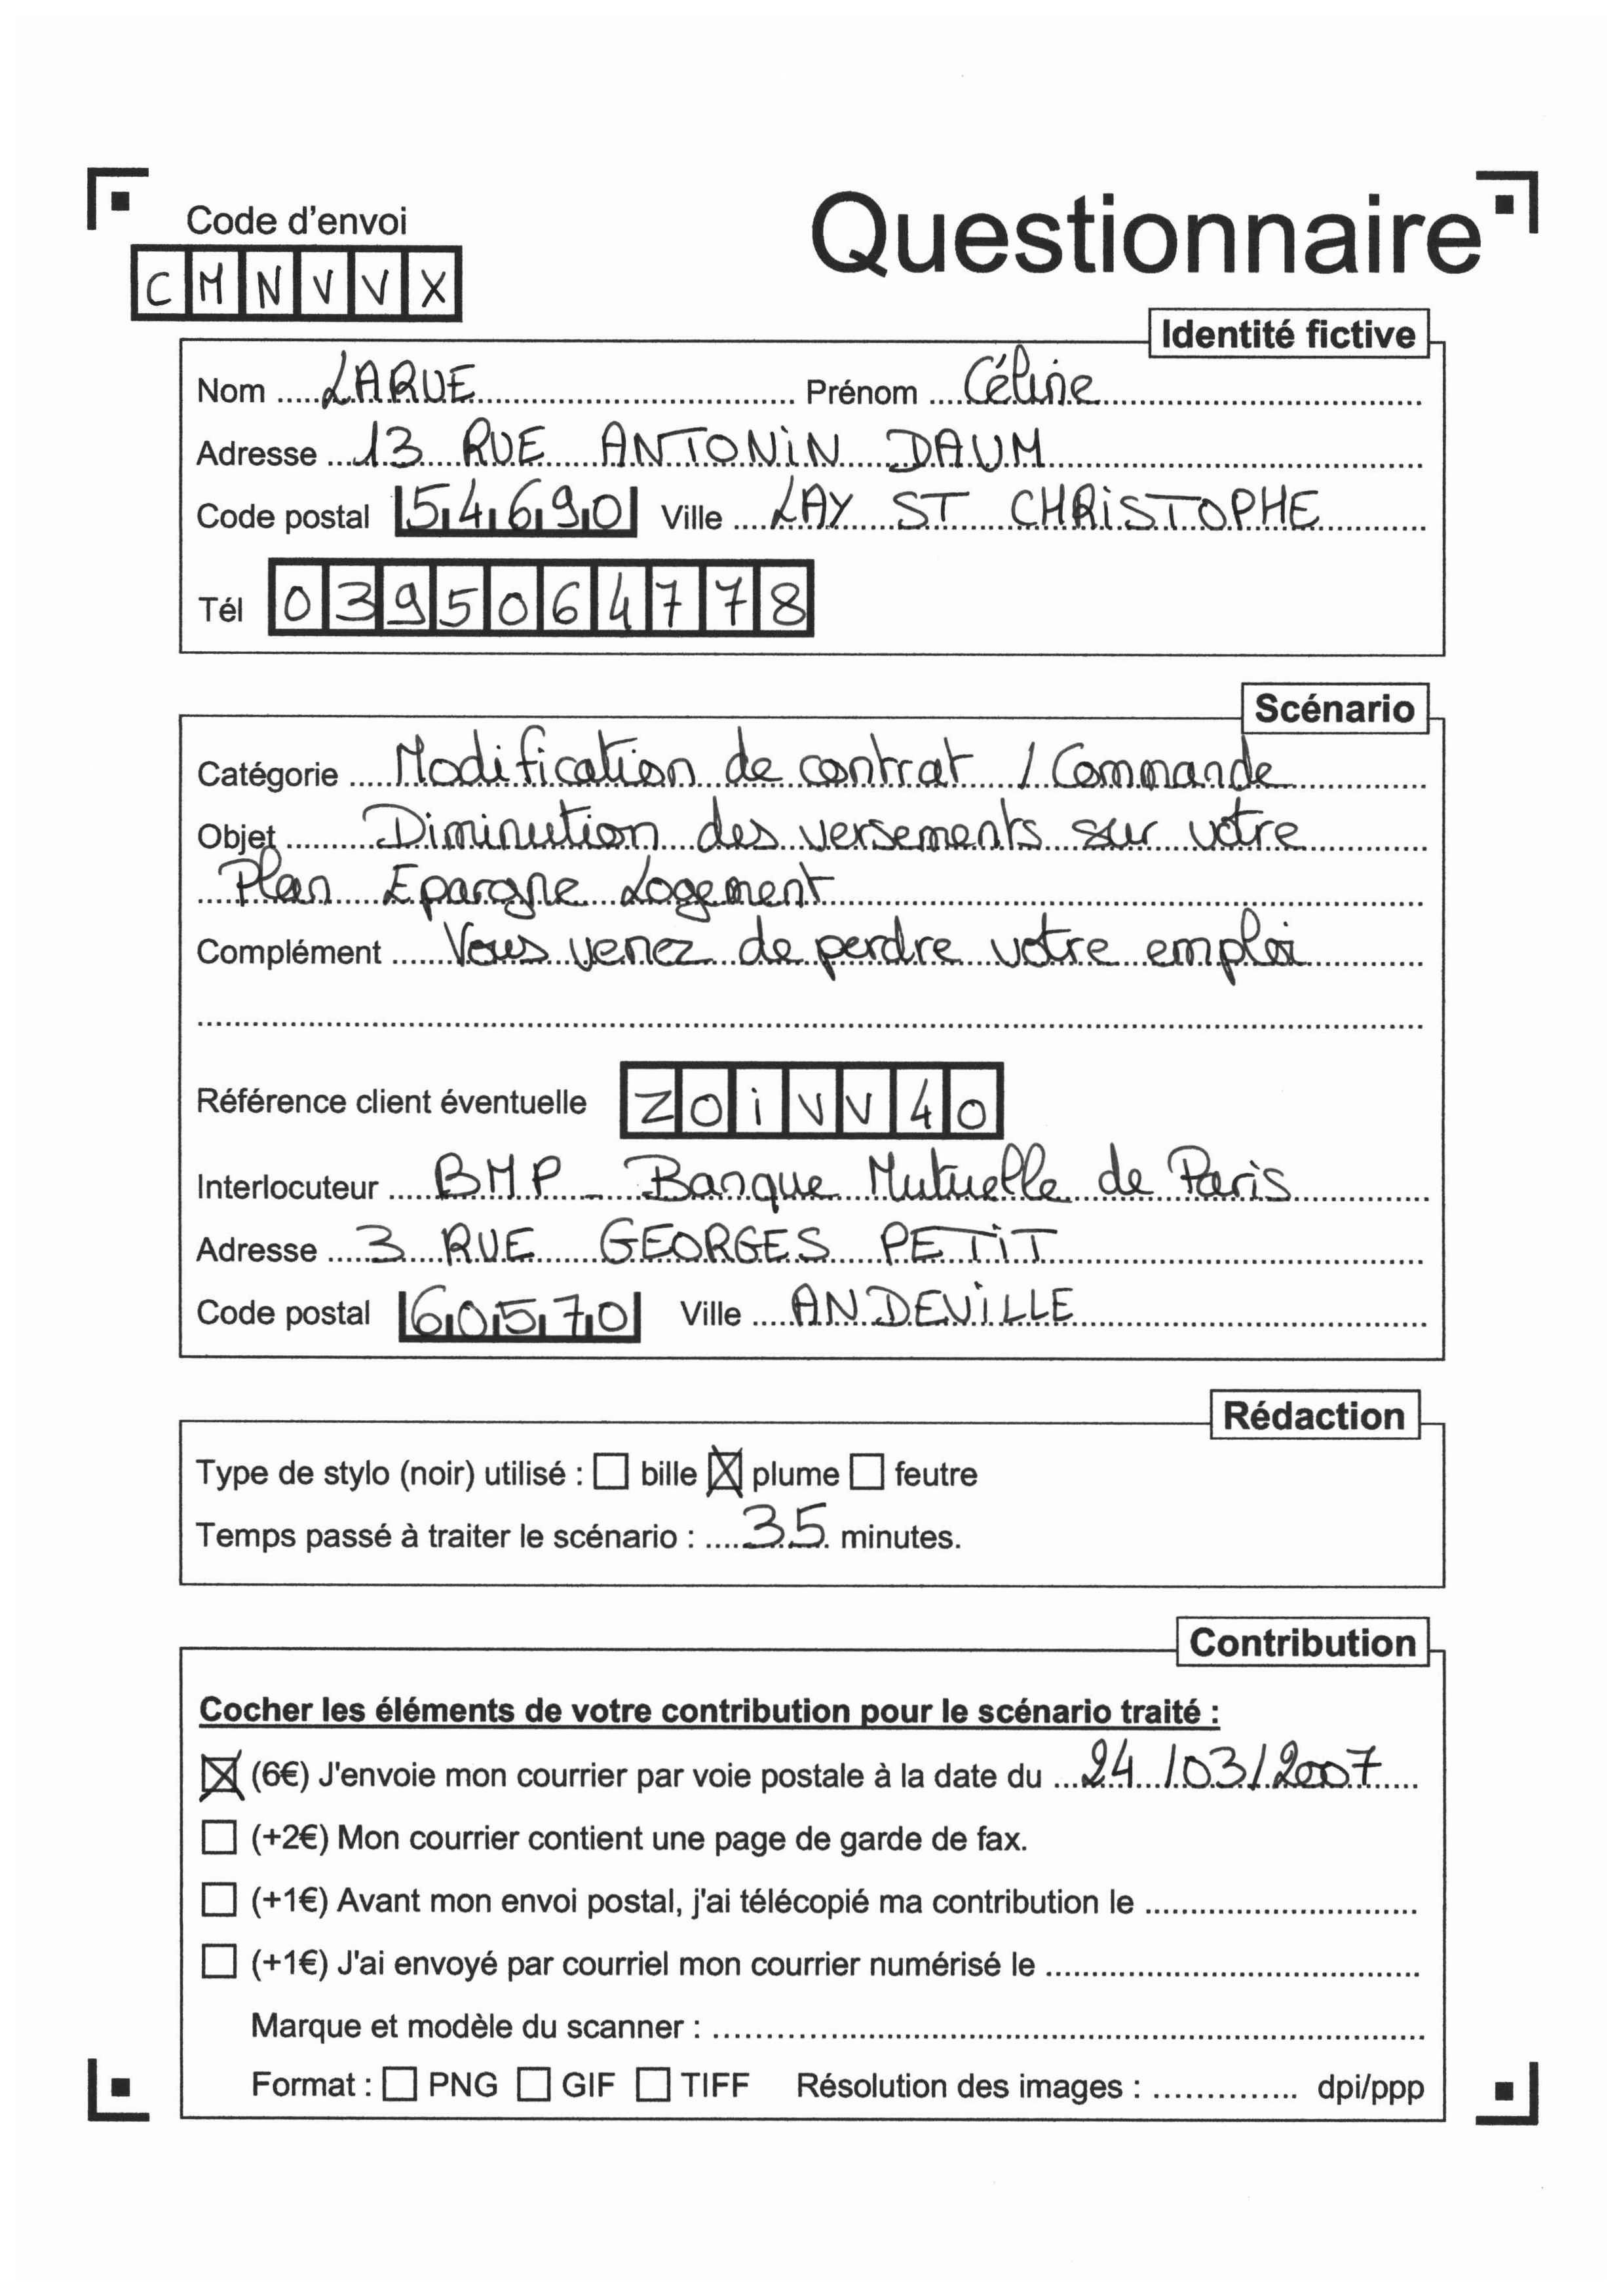 Code d'envoi
Questionnaire
CMNVVX
Identité fictive
Nom LARUE Prénom Céline
Adresse 13 RUE ANTONiN DAUM
Code postal 54690 Ville LAY ST CHRiSTOPHE
Tél 0395064778
Scénario
Catégorie Modification de contrat / Commande
Objet Diminution des versements sur votre
Plan Epargne Logement
Complément Vous venez de perdre votre emploi
Référence client éventuelle ZOiVV40
Interlocuteur BMP - Banque Mutuelle de Paris
Adresse 3 RUE GEORGES PETiT
Code postal 60570 Ville ANDEViLLE
Rédaction
Type de stylo (noir) utilisé : ☐ bille ☒ plume ☐ feutre
Temps passé à traiter le scénario : 35 minutes.
Contribution
Cocher les éléments de votre contribution pour le scénario traité :
☒ (6€) J'envoie mon courrier par voie postale à la date du 24/03/2007
☐ (+2€) Mon courrier contient une page de garde de fax.
☐ (+1€) Avant mon envoi postal, j'ai télécopié ma contribution le
☐ (+1€) J'ai envoyé par courriel mon courrier numérisé le
Marque et modèle du scanner :
Format : ☐ PNG ☐ GIF ☐ TIFF Résolution des images : dpi/ppp